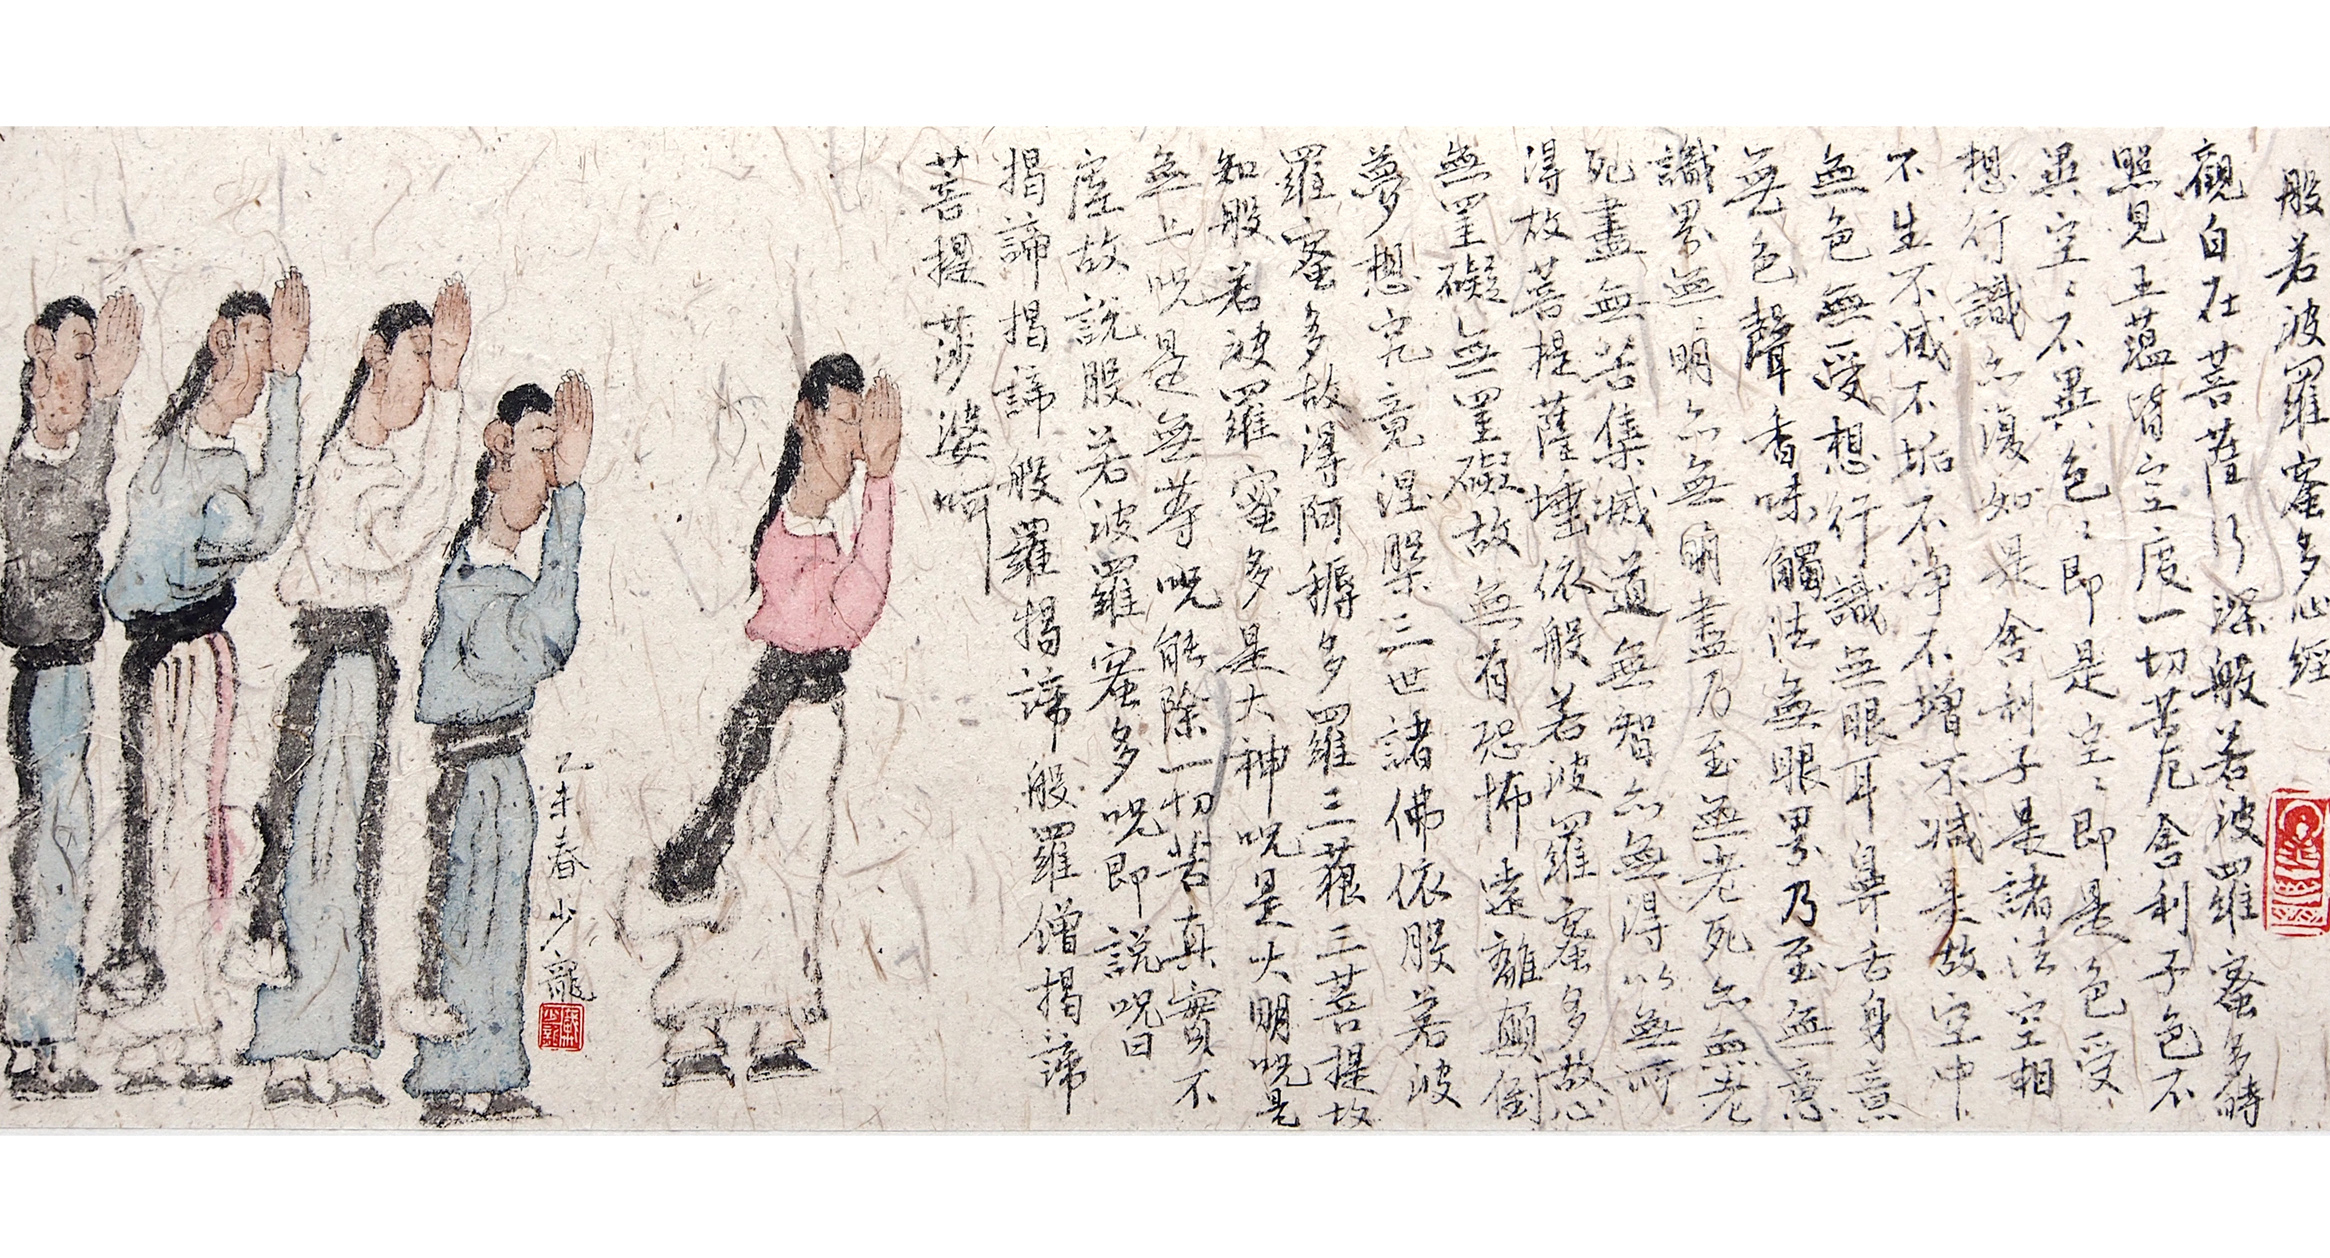 般若波羅蜜多心經
觀自在菩薩行深般若波羅蜜多時
照見五蘊皆空度一切苦厄舍利子色不
異空〻不異色〻即是空〻即是色受
想行識亦復如是舍利子是諸法空相
不生不滅不垢不淨不增不減是故空中
無色無受想行識無眼耳鼻舌身意
無色聲香味觸法無眼界乃至無意
識界無〻明亦無明盡乃至無老死亦無老
死盡無苦集滅道無智亦無得以無所
得故菩提薩埵依般若波羅蜜多故心
無罣礙無罣礙故無有恐怖遠離顛倒
夢想究竟涅槃三世諸佛依般若波
羅蜜多故得阿耨多羅三藐三菩提故
知般若波羅蜜多是大神呪是大明呪是
無上呪是無等呪能除一切苦真實不
虛故說般若波羅蜜多呪即說呪曰
揭諦揭諦般羅揭諦般羅僧揭諦
菩提莎婆呵
乙未春少龍
戴少龍